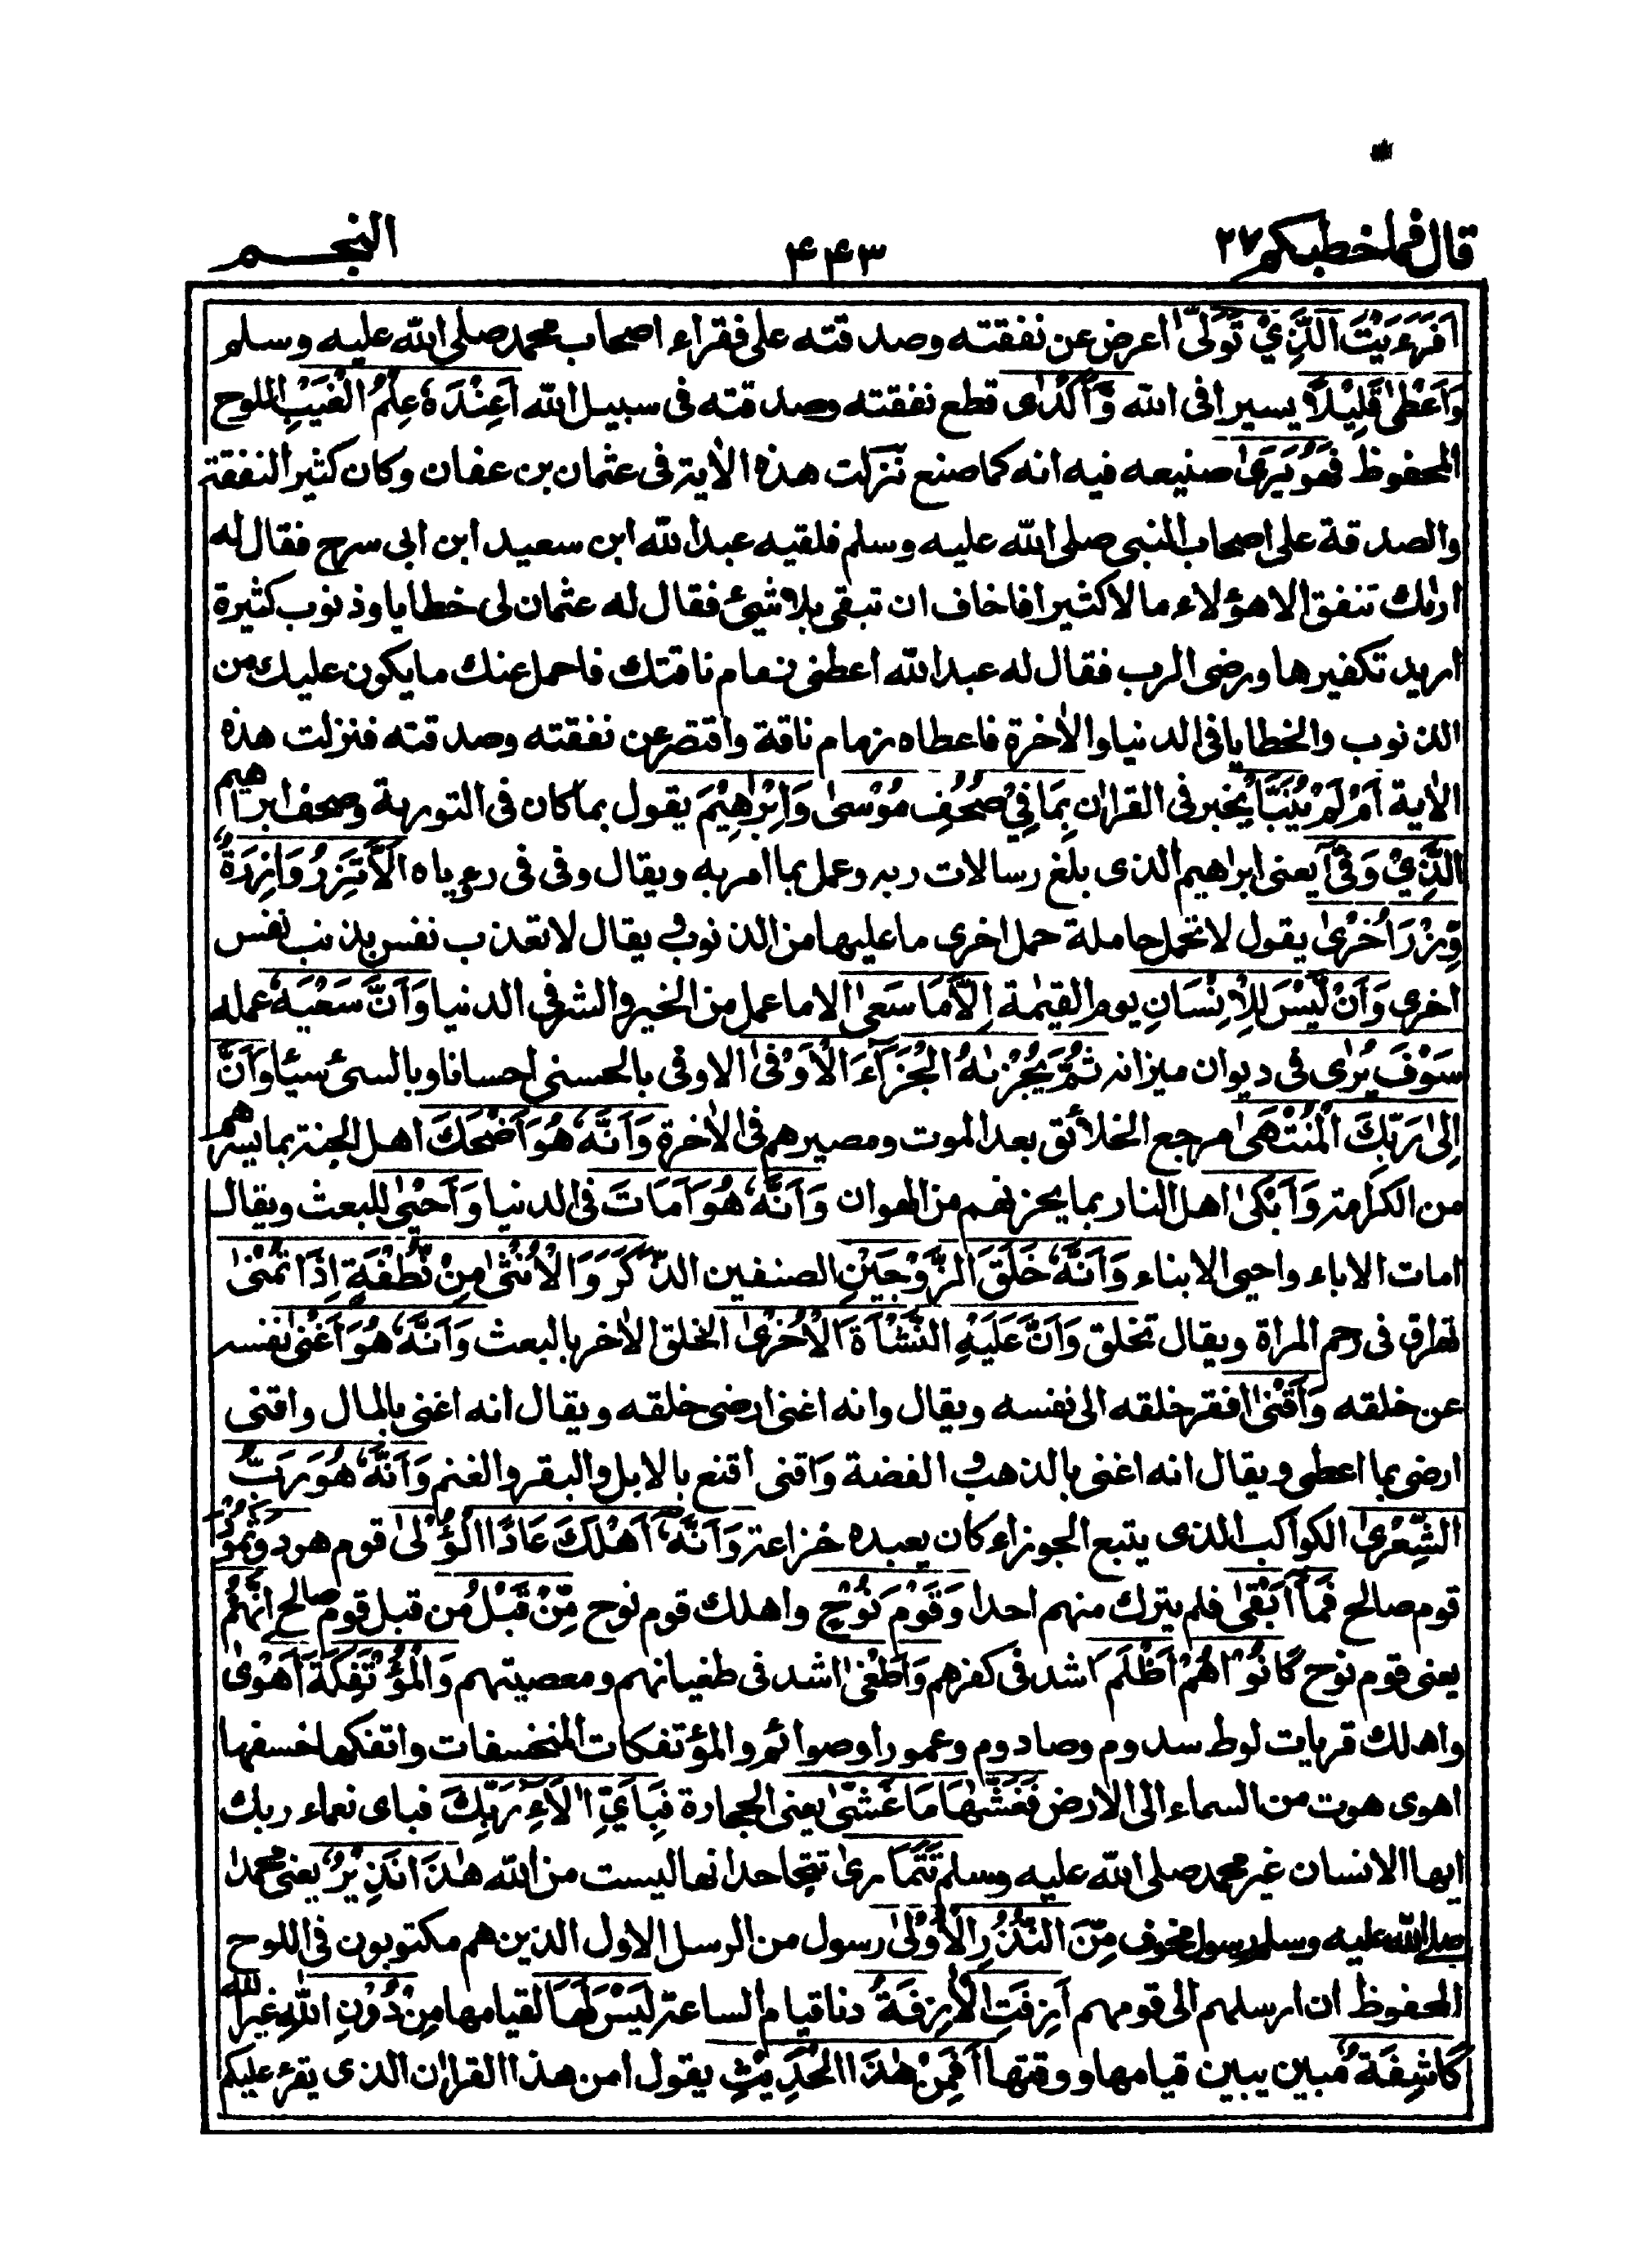 قال فما خطبكم ٢٧
٤٤٣
النجم
اَفَرَءَيْتَ الَّذِيْ تَوَلّٰى اعرض عن نفقته وصدقته على فقراء اصحاب محمد صلى الله عليه وسلم
وَاَعْطٰى قَلِيْلًا يسيرا فى الله وَّاَكْدٰى قطع نفقته وصدقته فى سبيل الله اَعِنْدَهٗ عِلْمُ الْغَيْبِ اللوح
المحفوظ فَهُوَ يَرٰى صنيعه فيه انه كما صنع نزلت هذه الاٰية فى عثمان بن عفان وكان كثير النفقة
والصدقة على اصحاب النبى صلى الله عليه وسلم فلقيه عبد الله ابن سعيد ابن ابى سرح فقال له
ارىٰك تنفق الا هؤلاء مالا كثيرا فاخاف ان تبقى بلا شيئ فقال له عثمان لى خطايا وذنوب كثيرة
اريد تكفيرها ورضى الرب فقال له عبد الله اعطنى زمام ناقتك فاحمل عنك ما يكون عليك من
الذنوب والخطايا فى الدنيا والاٰخرة فاعطاه زمام ناقة واقتصر عن نفقته وصدقته فنزلت هذه
الاٰية اَمْ لَمْ يُنَبَّأْ يخبر فى القراٰن بِمَا فِيْ صُحُفِ مُوْسٰى وَاِبْرٰهِيْمَ يقول بما كان فى التورىة وصحف ابراهيم
الَّذِيْ وَفّٰى يعنى ابرٰهيم الذى بلغ رسالات ربه وعمل بما امر به ويقال وفى فى رءياه اَلَّا تَزِرُ وَازِرَةٌ
وِّزْرَ اُخْرٰى يقول لا تحمل حاملة حمل اخرى ما عليها من الذنوب ويقال لا تعذب نفس بذنب نفس
اخرى وَاَنْ لَّيْسَ لِلْاِنْسَانِ يوم القيٰمة اِلَّا مَا سَعٰى الا ما عمل من الخير والشر فى الدنيا وَاَنَّ سَعْيَهٗ عمله
سَوْفَ يُرٰى فى ديوان ميزانه ثُمَّ يُجْزٰىهُ الْجَزَآءَ الْاَوْفٰى الاوفى بالحسنى احسانا وبالسئ سيئا وَاَنَّ
اِلٰى رَبِّكَ الْمُنْتَهٰى مرجع الخلائق بعد الموت ومصيرهم فى الاٰخرة وَاَنَّهٗ هُوَ اَضْحَكَ اهل الجنة بما يسرهم
من الكرامة وَاَبْكٰى اهل النار بما يحزنهم من الهوان وَاَنَّهٗ هُوَ اَمَاتَ فى الدنيا وَاَحْيٰى للبعث ويقال
امات الاباء واحيى الابناء وَاَنَّهٗ خَلَقَ الزَّوْجَيْنِ الصنفين الذَّكَرَ وَالْاُنْثٰى مِنْ نُّطْفَةٍ اِذَا تُمْنٰى
تهراق فى رحم المراة ويقال تخلق وَاَنَّ عَلَيْهِ النَّشْاَةَ الْاُخْرٰى الخلق الاٰخر بالبعث وَاَنَّهٗ هُوَ اَغْنٰى نفسه
عن خلقه وَاَقْنٰى افقر خلقه الى نفسه ويقال وانه اغنى ارضى خلقه ويقال انه اغنى بالمال واقنى
ارضى بما اعطى ويقال انه اغنى بالذهب والفضة وَاقنى اقنع بالابل والبقر والغنم وَاَنَّهٗ هُوَ رَبُّ
الشِّعْرٰى الكواكب الذى يتبع الجوزاء كان يعبده خزاعة وَاَنَّهٗ اَهْلَكَ عَادًا الْاُوْلٰى قوم هود وَثَمُوْدَ
قوم صالح فَمَآ اَبْقٰى فلم يترك منهم احدا وَقَوْمَ نُوْحٍ واهلك قوم نوح مِّنْ قَبْلُ من قبل قوم صالح اِنَّهُمْ
يعنى قوم نوح كَانُوْا هُمْ اَظْلَمَ اشد فى كفرهم وَاَطْغٰى اشد فى طغيانهم ومعصيتهم وَالْمُؤْتَفِكَةَ اَهْوٰى
واهلك قريات لوط سدوم وصادوم وعمورا وصوائم والمؤتفكات المنخسفات وائتفكها خسفها
اهوى هوت من السماء الى الارض فَغَشّٰهَا مَا غَشّٰى يعنى الحجارة فَبِاَيِّ اٰلَاءِ رَبِّكَ فباى نعماء ربك
ايها الانسان غير محمد صلى الله عليه وسلم تَتَمَارٰى تتجاحد انها ليست من الله هٰذَا نَذِيْرٌ يعنى محمدا
صلى الله عليه وسلم رسول مخوف مِّنَ النُّذُرِ الْاُوْلٰى رسول من الرسل الاول الذين هم مكتوبون فى اللوح
المحفوظ ان ارسلهم الى قومهم اَزِفَتِ الْاٰزِفَةُ دنا قيام الساعة لَيْسَ لَهَا لقيامها مِنْ دُوْنِ اللهِ غير الله
كَاشِفَةٌ مبين يبين قيامها ووقتها اَفَمِنْ هٰذَا الْحَدِيْثِ يقول امن هذا القراٰن الذى يقرء عليكم